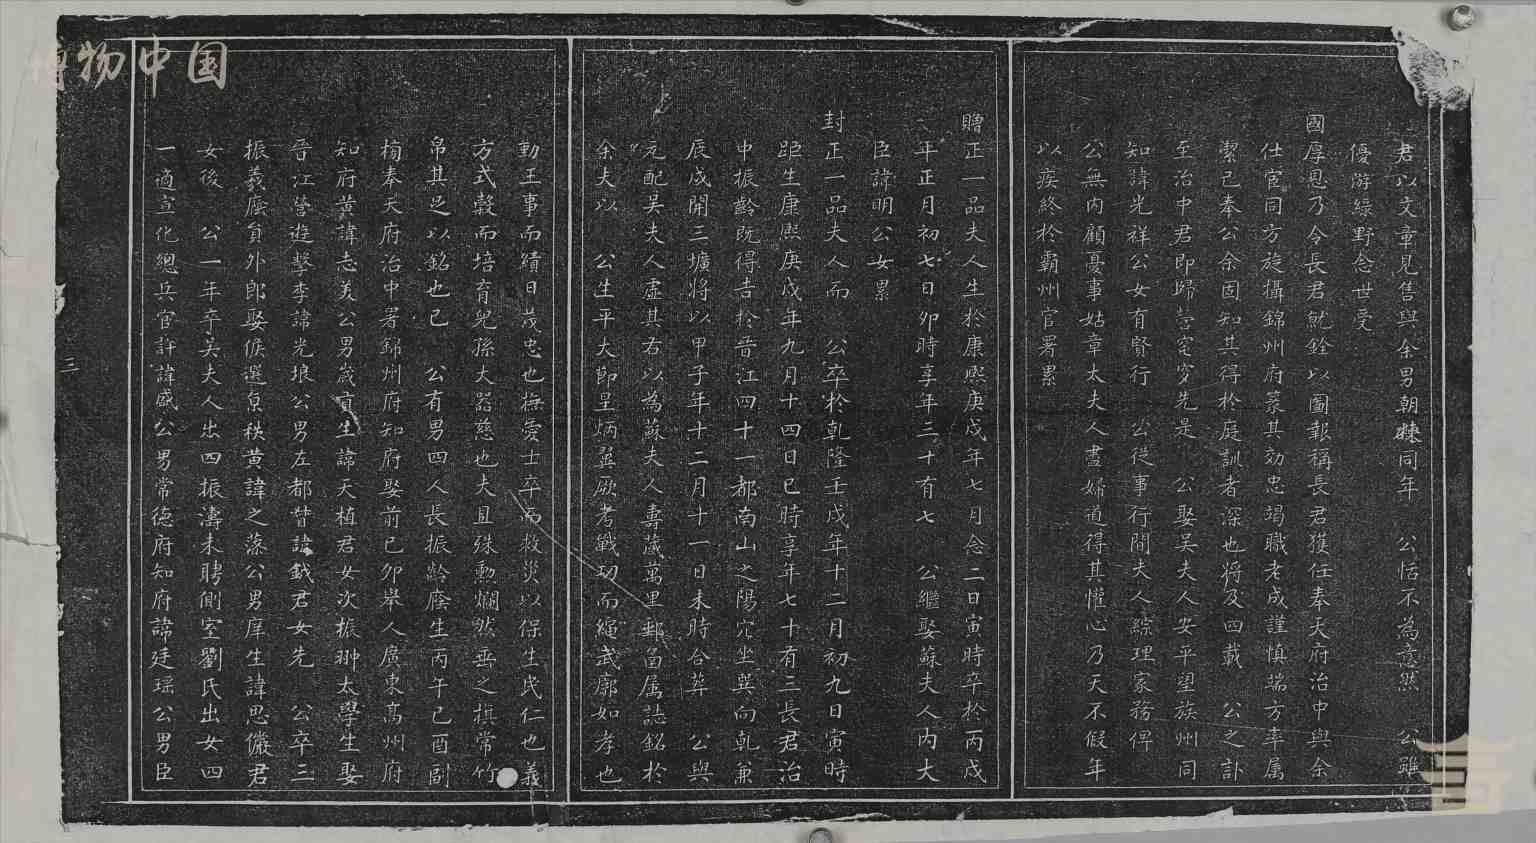 君以文章見售與余男朝棟同年 公恬不為意然 公雖
優游綠野念世受
國厚恩乃令長君就銓以圖報稱長君獲任奉天府治中與余
仕宦同方旋攝錦州府篆其効忠竭職老成謹慎端方率属
潔己奉公余固知其得於庭訓者深也將及四載 公之訃
至治中君即歸營窀穸先是 公娶吴夫人安平望族州同
知諱光祥公女有賢行 公從事行間夫人綜理家務俾
公無内顧憂事姑章太夫人盡婦道得其懽心乃天不假年
以疾終於霸州官署累
贈正一品夫人生於康熙庚戌年七月念二日寅時卒於丙戌
年正月初七日卯時享年三十有七 公繼娶蘇夫人内大
臣諱明公女累
封正一品夫人而 公卒於乾隆壬戌年十二月初九日寅時
距生康熙庚戌年九月十四日巳時享年七十有三長君治
中振齡既得吉於晋江四十一都南山之陽穴坐巽向乾兼
辰戌開三壙將以甲子年十二月十一日未時合葬 公與
元配吴夫人虚其右以為蘇夫人壽藏萬里郵書属誌銘於
余夫以 公生平大節呈炳並厥考戰功而繩武廓如孝也
勤王事而績日茂忠也撫愛士卒而救災以保生民仁也義
方式穀而培育兒孫大器慈也夫且殊勳爛然垂之旂常竹
帛其足以銘也已 公有男四人長振齡廕生丙午己酉副
榜奉天府治中署錦州府知府娶前己卯舉人廣東高州府
知府黄諱志美公男歲貢生諱天植君女次振翀太學生娶
晋江營遊擊李諱光埌公男左都督諱鉞君女先 公卒三
振羲廕貟外郎娶候選京秩黄諱之藻公男庠生諱思儼君
女後 公一年卒吴夫人出四振濤未聘側室劉氏出女四
一適宣化總兵官許諱盛公男常德府知府諱廷瑶公男臣
三
博物中国